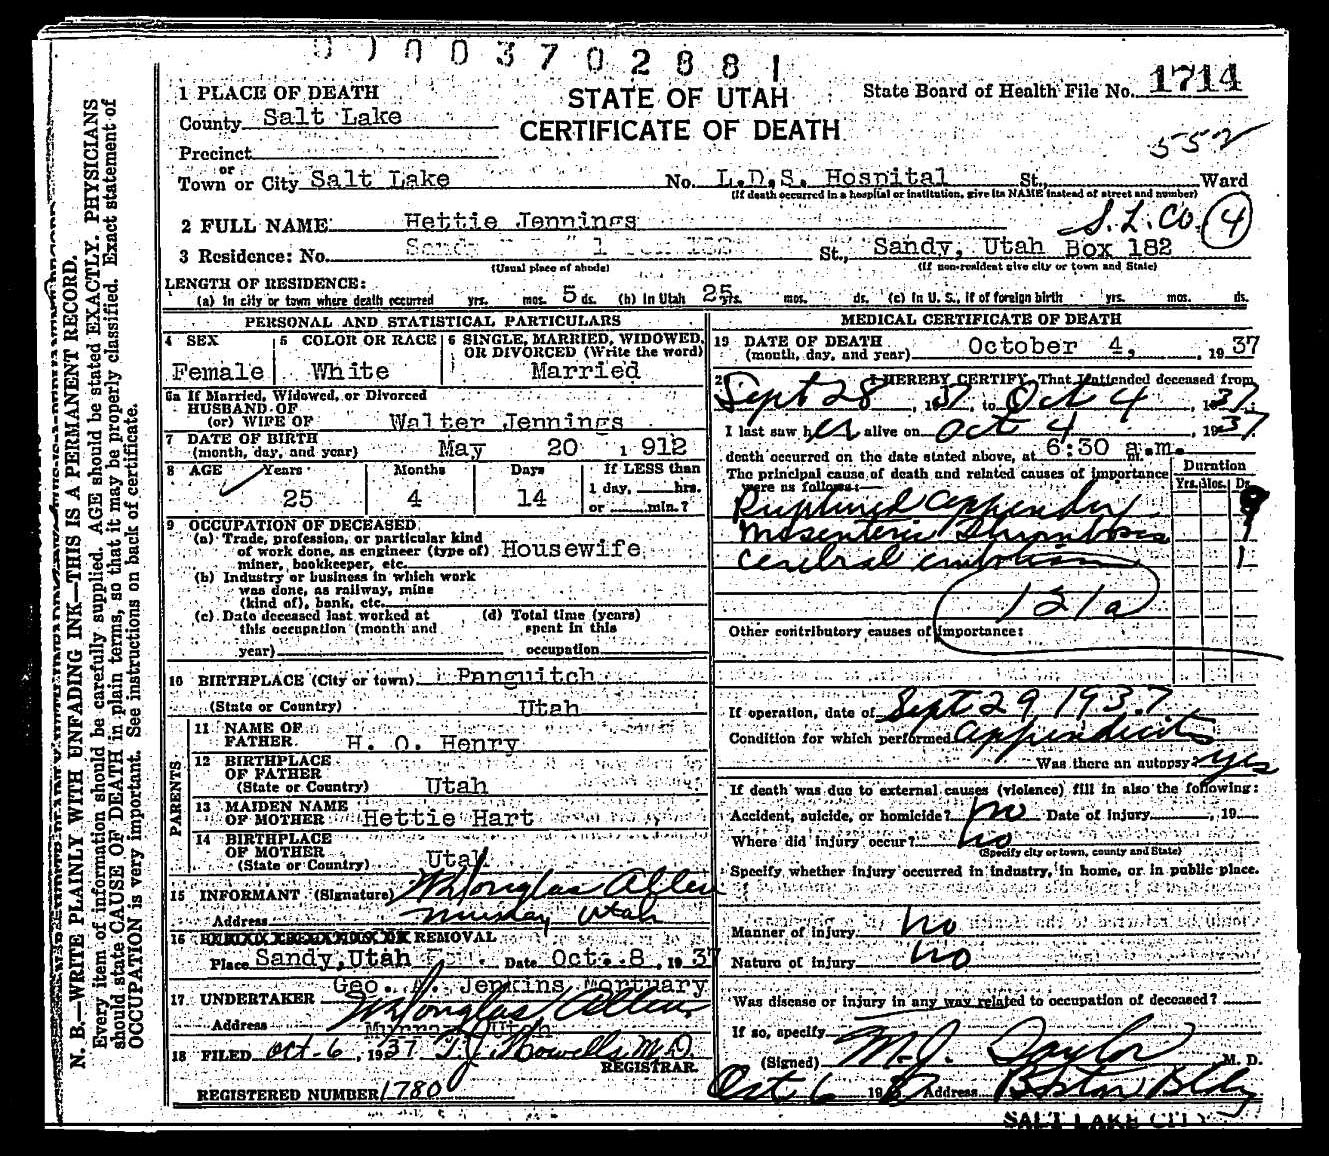 0 0 0 3 7 0 2 8 8 1
STATE OF UTAH
CERTIFICATE OF DEATH
State Board of Health File No. 1714
552
1 PLACE OF DEATH
County Salt Lake
Precinct
or
Town or City Salt Lake No. L.D.S. Hospital St., Ward
(If death occurred in a hospital or institution, give its NAME instead of street and number)
2 FULL NAME Hettie Jennings
S. L. Co. 4
3 Residence: No. St., Sandy, Utah Box 182
(Usual place of abode) (If non-resident give city or town and State)
LENGTH OF RESIDENCE:
(a) In city or town where death occurred yrs. mos. 5 ds. (b) In Utah 25 yrs. mos. ds. (c) In U. S., if of foreign birth yrs. mos. ds.
PERSONAL AND STATISTICAL PARTICULARS
4 SEX Female
5 COLOR OR RACE White
6 SINGLE, MARRIED, WIDOWED, OR DIVORCED (Write the word) Married
6a If Married, Widowed, or Divorced
HUSBAND OF
(or) WIFE OF Walter Jennings
7 DATE OF BIRTH
(month, day, and year) May 20 1912
8 AGE Years Months Days If LESS than
25 4 14 1 day, hrs.
or min.?
9 OCCUPATION OF DECEASED
(a) Trade, profession, or particular kind
of work done, as engineer (type of) Housewife
miner, bookkeeper, etc.
(b) Industry or business in which work
was done, as railway, mine
(kind of), bank, etc.
(c) Date deceased last worked at (d) Total time (years)
this occupation (month and spent in this
year) occupation
10 BIRTHPLACE (City or town) Panguitch
(State or Country) Utah
PARENTS
11 NAME OF
FATHER H. O. Henry
12 BIRTHPLACE
OF FATHER
(State or Country) Utah
13 MAIDEN NAME
OF MOTHER Hettie Hart
14 BIRTHPLACE
OF MOTHER Utah
(State or Country)
15 INFORMANT (Signature) W Douglas Allen
Address Murray Utah
16 REMOVAL
Place Sandy, Utah Date Oct. 8, 1937
Geo. A. Jenkins Mortuary
17 UNDERTAKER W Douglas Allen
Address Murray Utah
18 FILED Oct-6, 1937 T. J. Howells M.D.
REGISTRAR.
REGISTERED NUMBER 1780
MEDICAL CERTIFICATE OF DEATH
19 DATE OF DEATH
(month, day, and year) October 4, 1937
I HEREBY CERTIFY, That I attended deceased from
Sept 28, 1937, to Oct 4, 1937
I last saw her alive on Oct 4, 1937
death occurred on the date stated above, at 6:30 a.m. m.
The principal cause of death and related causes of importance Duration
were as follows: Yrs. Mos. Ds.
Ruptured appendix 9
Mesenteric Thrombosis
Cerebral embolism 1
121a
Other contributory causes of importance:
If operation, date of Sept 29 1937
Condition for which performed Appendicitis
Was there an autopsy? yes
If death was due to external causes (violence) fill in also the following:
Accident, suicide, or homicide? no Date of Injury , 19
Where did injury occur? no
(Specify city or town, county and State)
Specify whether injury occurred in industry, in home, or in public place.
Manner of injury no
Nature of injury no
Was disease or injury in any way related to occupation of deceased?
If so, specify
(Signed) M. J. Taylor M. D.
Oct 6 1937 Address Boston Bldg
SALT LAKE CITY
N. B.—WRITE PLAINLY WITH UNFADING INK—THIS IS A PERMANENT RECORD.
Every item of information should be carefully supplied. AGE should be stated EXACTLY. PHYSICIANS
should state CAUSE OF DEATH in plain terms, so that it may be properly classified. Exact statement of
OCCUPATION is very important. See instructions on back of certificate.